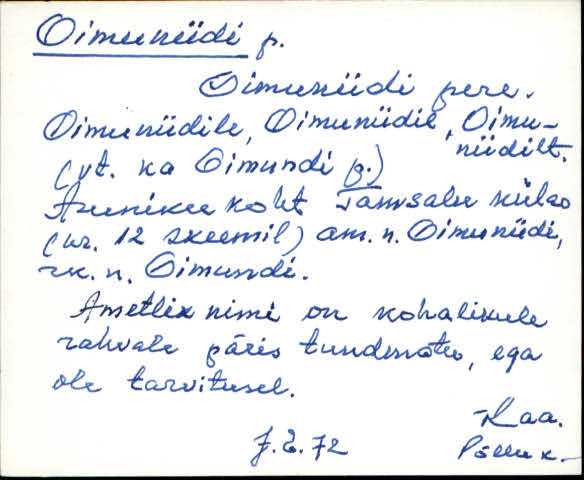 Oimuniidi p.
Oimuniidi pere.
Oimuniidile, Oimuniidil, Oimu-
niidilt.
(vt. ka Oimundi p.)
Asuniku koht Tamsalu külas
(nr. 12 skeemil) am. n. Oimuniidi,
rk. n. Oimundi.
Ametlik nimi on kohalikule
rahvale päris tundmatu, ega
ole tarvitusel.
J.E.72
Kaa.
Põllu k.